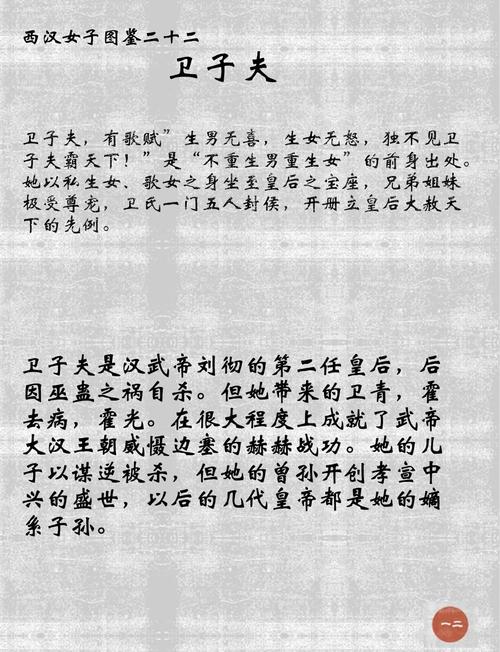 西汉女子图鉴二十二
卫子夫
卫子夫，有歌赋”生男无喜，生女无怒，独不见卫
子夫霸天下！”是“不重生男重生女”的前身出处。
她以私生女、歌女之身坐至皇后之宝座，兄弟姐妹
极受尊宠，卫氏一门五人封侯，开册立皇后大赦天
下的先例。
卫子夫是汉武帝刘彻的第二任皇后，后
因巫蛊之祸自杀。但她带来的卫青，霍
去病，霍光。在很大程度上成就了武帝
大汉王朝威慑边塞的赫赫战功。她的儿
子以谋逆被杀，但她的曾孙开创孝宣中
兴的盛世，以后的几代皇帝都是她的嫡
系子孙。
一二